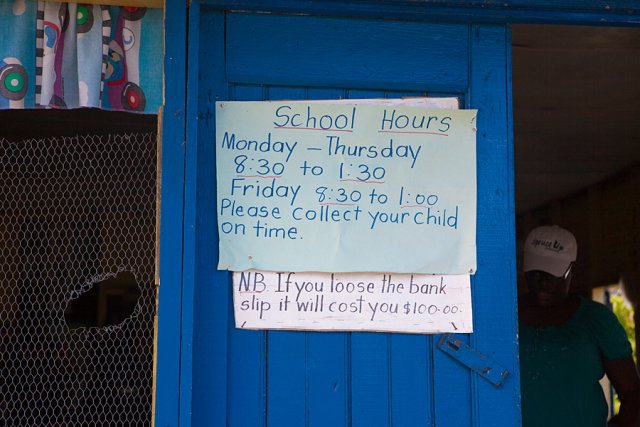 School Hours
Monday – Thursday
8:30 to 1:30
Friday 8:30 to 1:00
Please collect your child
on time.
NB. If you loose the bank
slip it will cost you $100.00.
Spruce Up